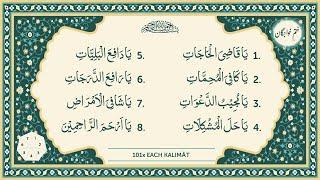 ختم خواجگان
1. يَا قَاضِيَ الْحَاجَاتِ
2. يَا كَافِيَ الْمُهِمَّاتِ
3. يَا مُجِيْبَ الدَّعْوَاتِ
4. يَا حَلَّ الْمُشْكِلَاتِ
5. يَا دَافِعَ الْبَلِيَّاتِ
6. يَا رَافِعَ الدَّرَجَاتِ
7. يَا شَافِيَ الْأَمْرَاضِ
8. يَا أَرْحَمَ الرَّاحِمِيْنَ
101x EACH KALIMĀT